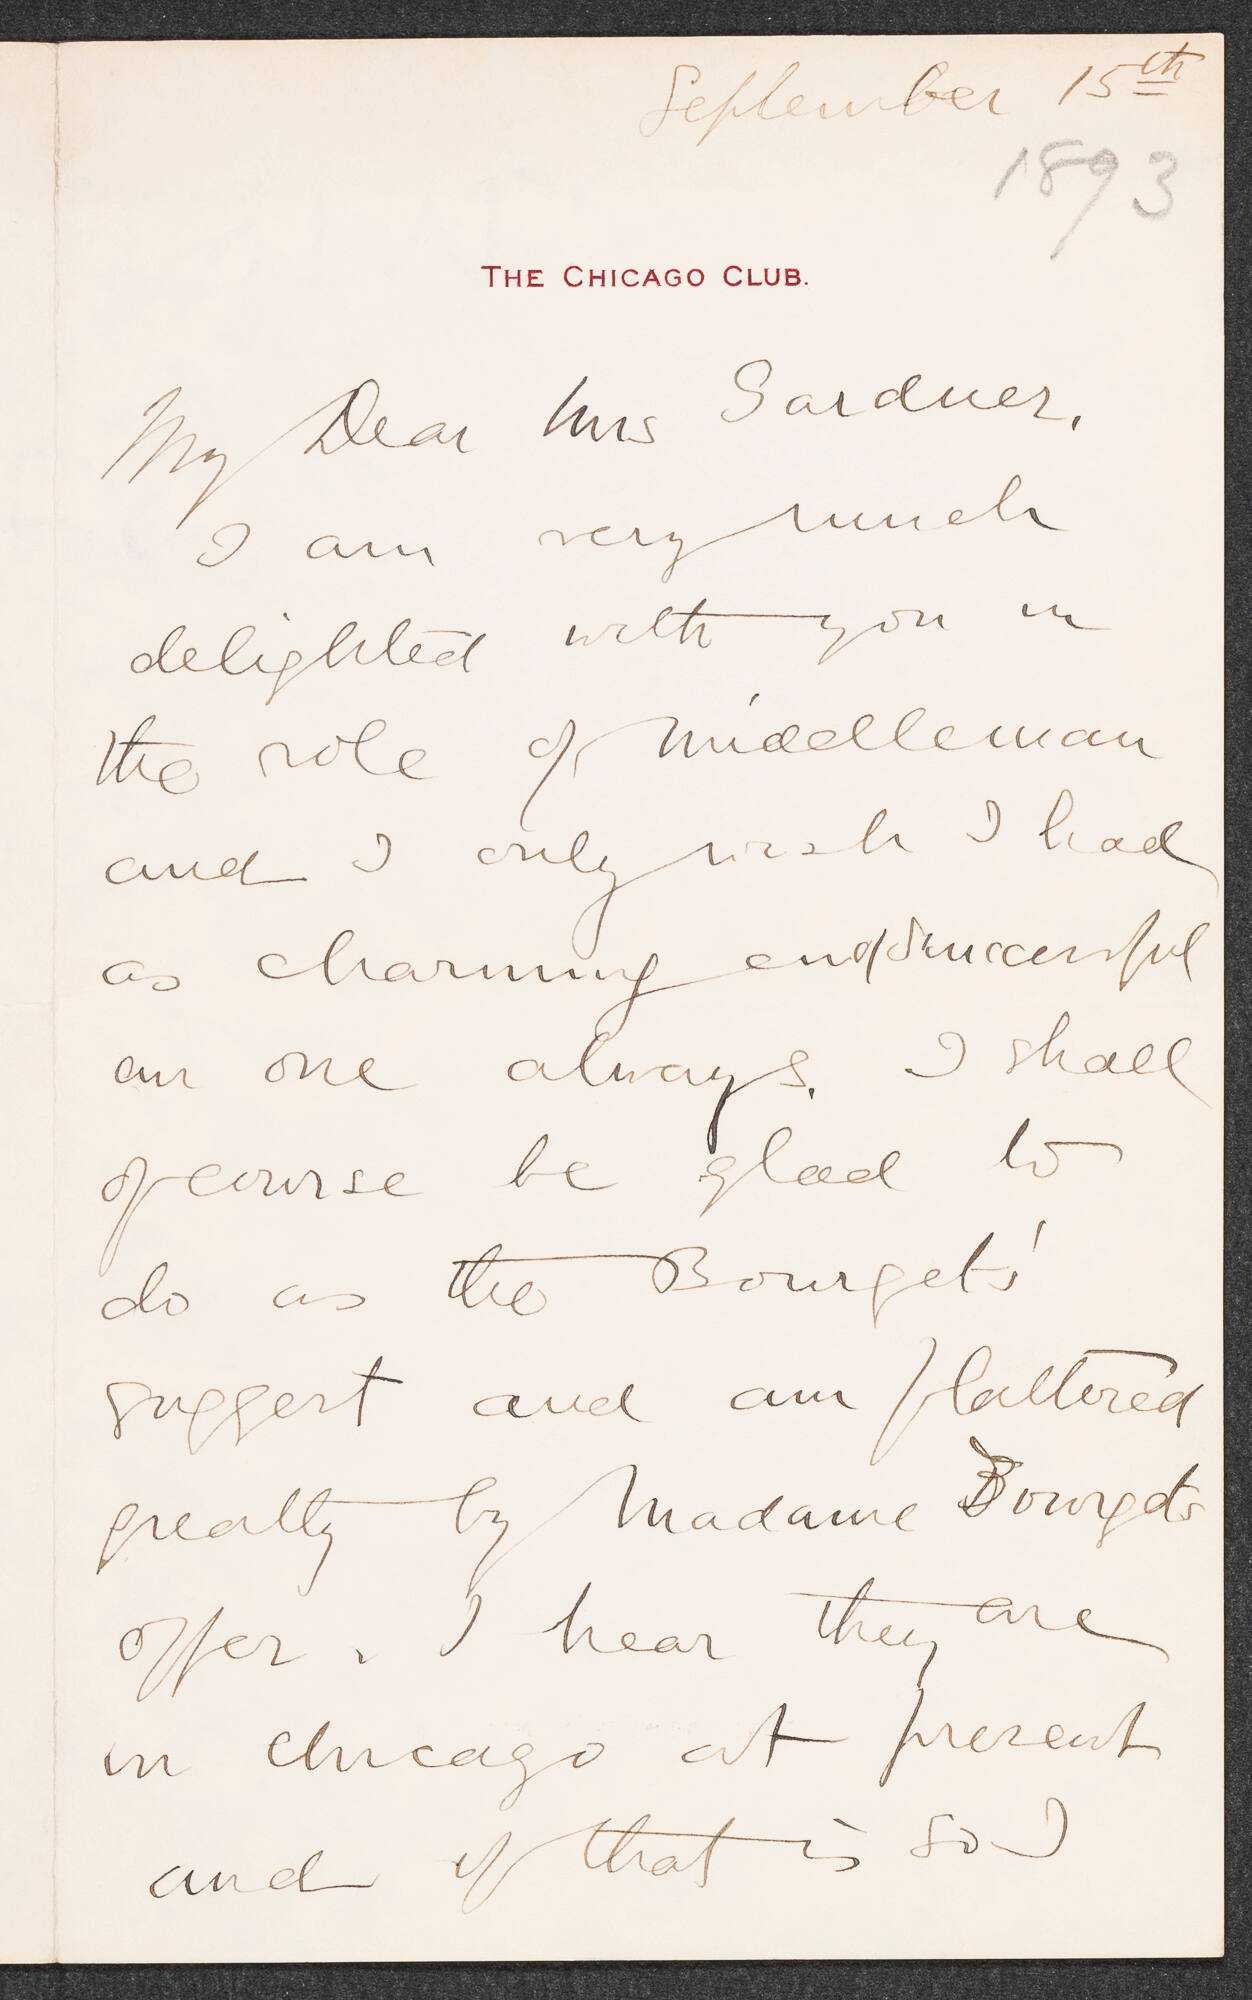 September 15th
1893
THE CHICAGO CLUB.
My Dear Mrs Gardner,
I am very much
delighted with you in
the role of middleman
and I only wish I had
as charming and successful
an one always. I shall
of course be glad to
do as the Bourgets'
suggest and am flattered
greatly by Madame Bourgets
offer. I hear they are
in Chicago at present
and if that is so I